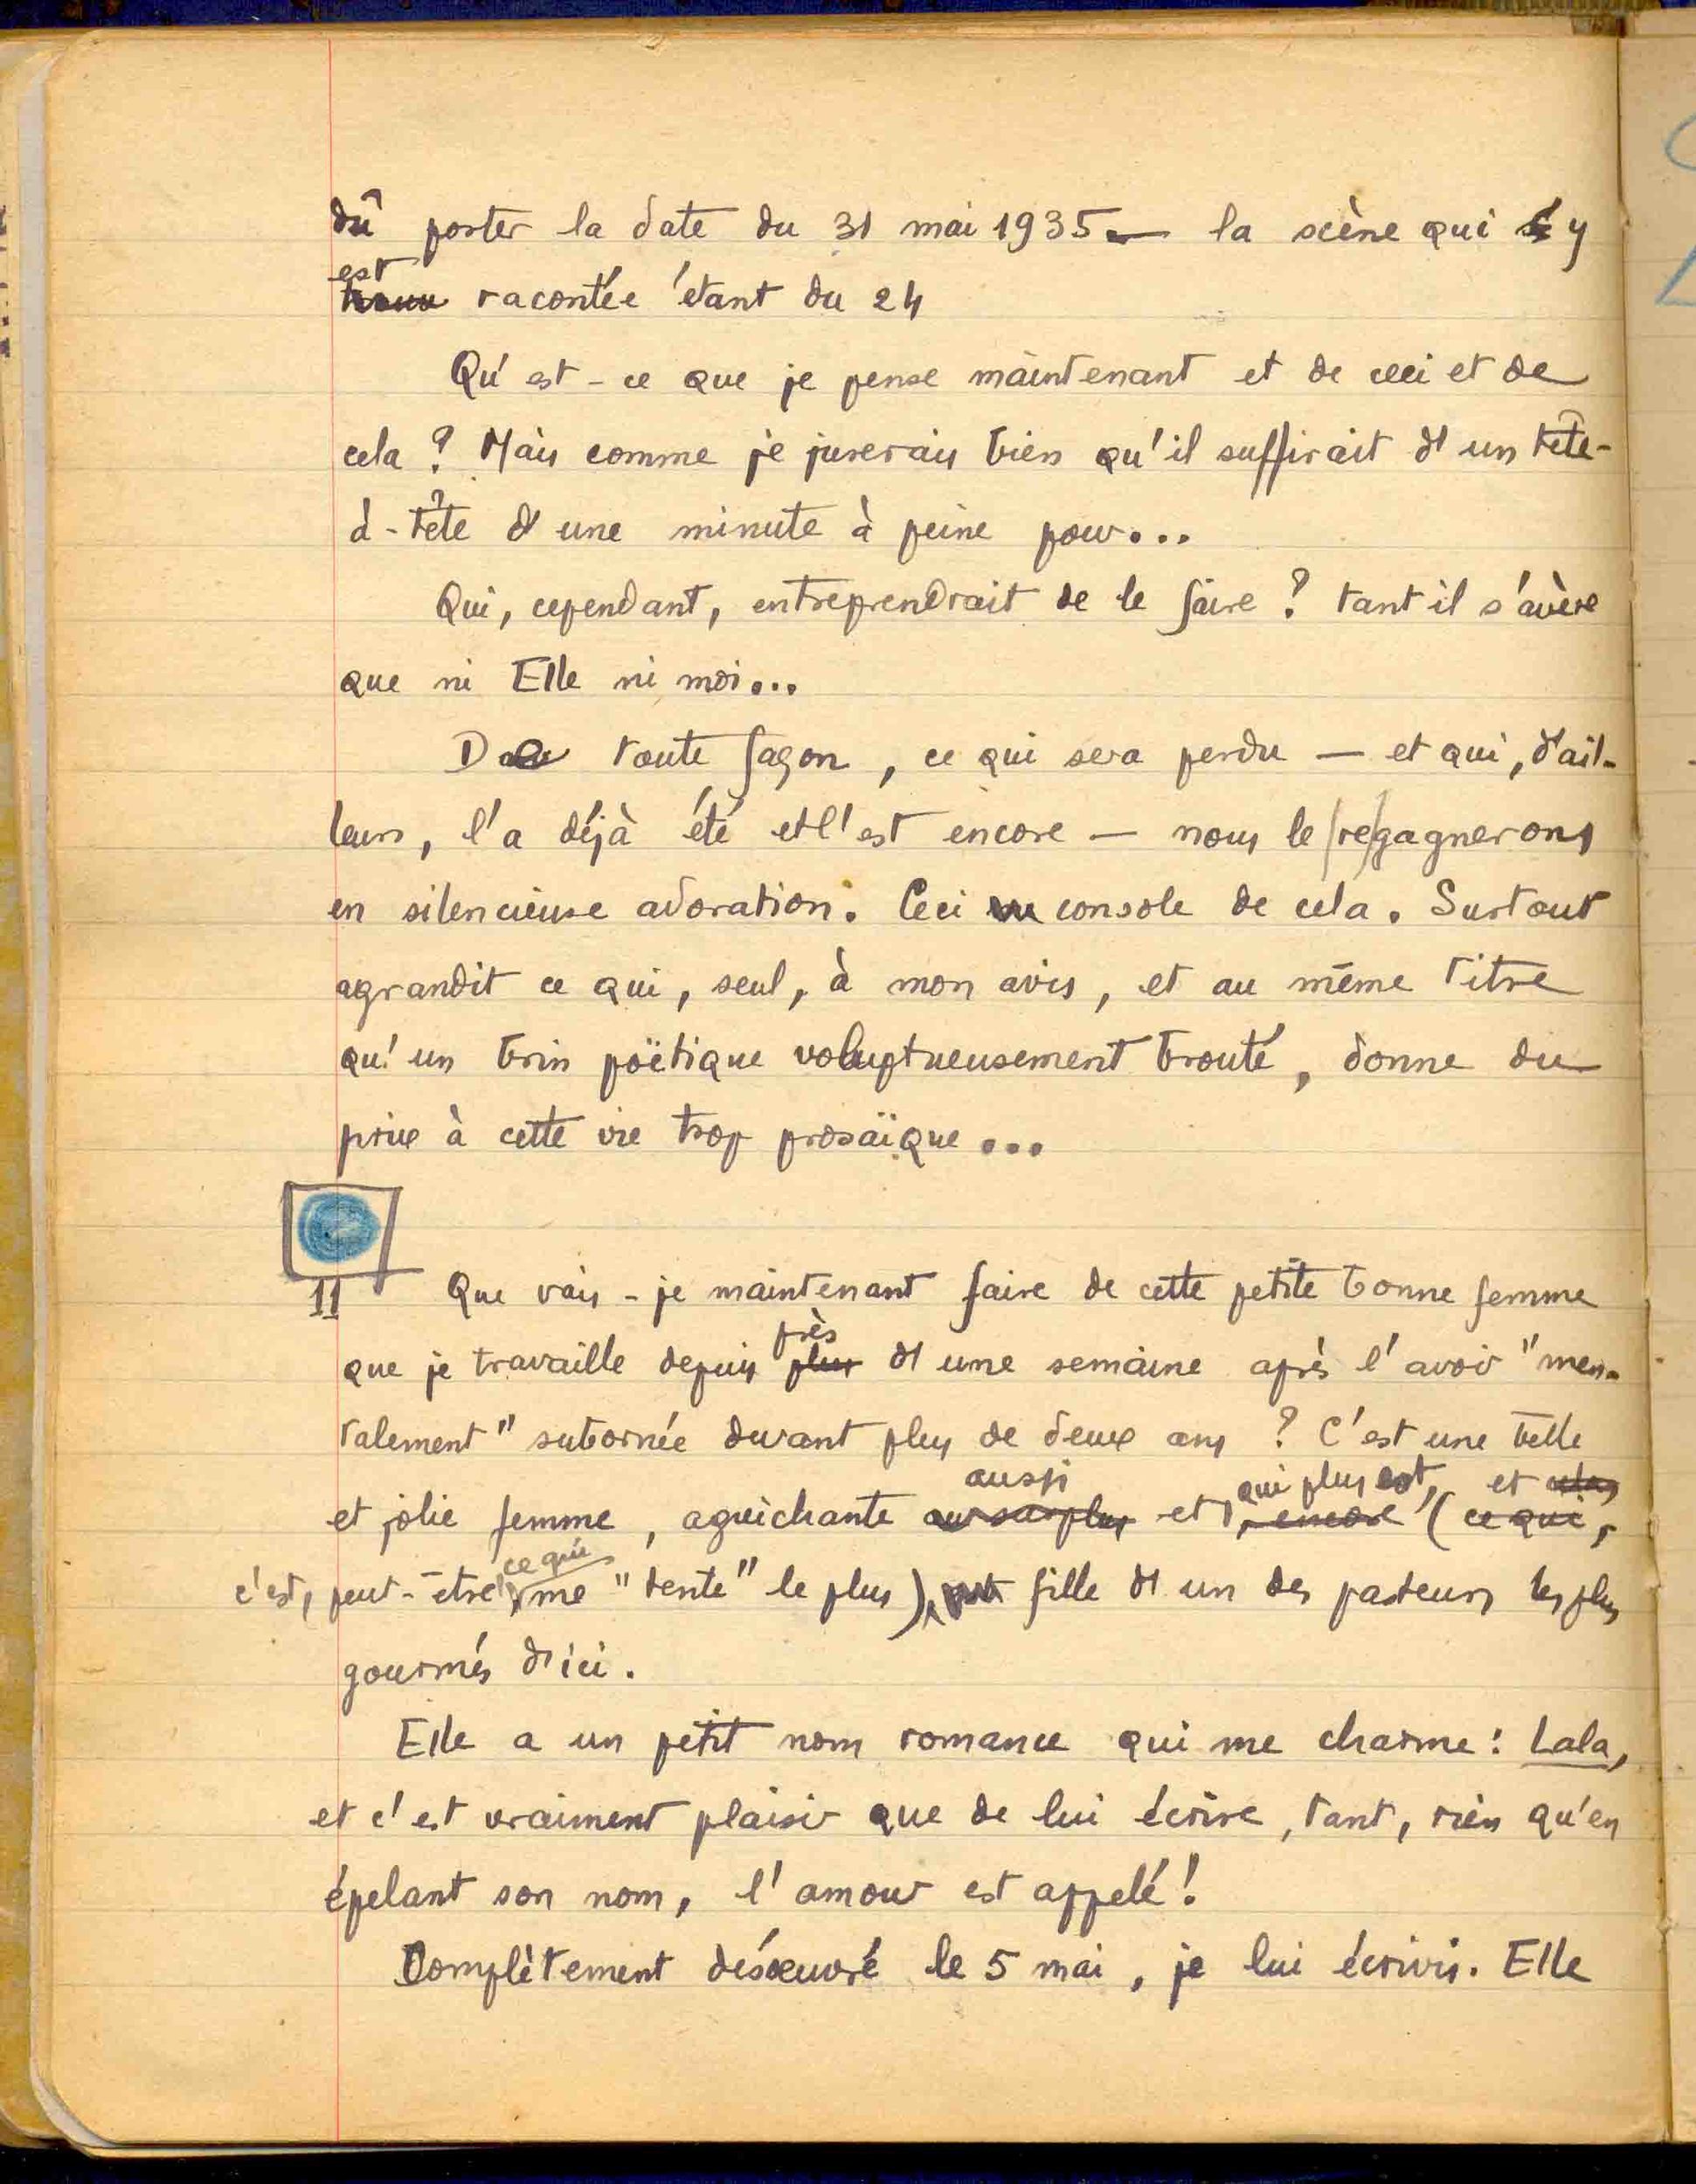 dû porter la date du 31 mai 1935 — la scène qui y
est racontée étant du 24
Qu'est-ce que je pense maintenant et de ceci et de
cela ? Mais comme je jurerais bien qu'il suffirait d'un tête-
à-tête d'une minute à peine pour...
Qui, cependant, entreprendrait de le faire ? tant il s'avère
que ni Elle ni moi...
De toute façon, ce qui sera perdu — et qui, d'ail-
leurs, l'a déjà été et l'est encore — nous le (re)gagnerons
en silencieuse adoration. Ceci console de cela. Surtout
agrandit ce qui, seul, à mon avis, et au même titre
qu'un brin poëtique voluptueusement brouté, donne du
prix à cette vie trop prosaïque...
11 Que vais-je maintenant faire de cette petite bonne femme
près
que je travaille depuis plus d'une semaine après l'avoir "men-
talement" subornée durant plus de deux ans ? C'est une belle
aussi qui plus est, et
et jolie femme, aguichante au surplus et, encore (ce qui,
ce qui
c'est, peut-être, me "tente" le plus), fille d'un des pasteurs les plus
gourmés d'ici.
Elle a un petit nom romance qui me charme : Lala,
et c'est vraiment plaisir que de lui écrire, tant, rien qu'en
épelant son nom, l'amour est appelé !
Complètement désœuvré le 5 mai, je lui écrivis. Elle